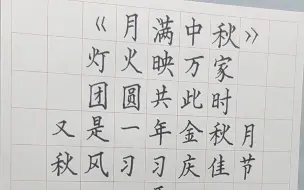 《月满中秋》
灯火映万家
团圆共此时
又是一年金秋月
秋风习习庆佳节